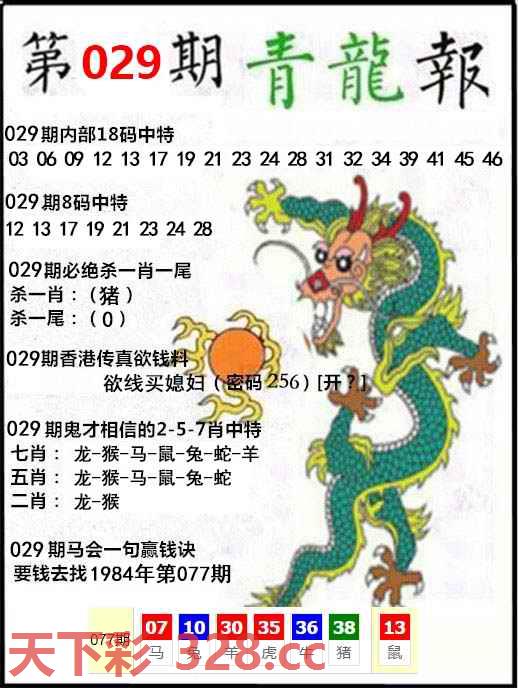 第029期青龍報
029期内部18码中特
03 06 09 12 13 17 19 21 23 24 28 31 32 34 39 41 45 46
029期8码中特
12 13 17 19 21 23 24 28
029期必绝杀一肖一尾
杀一肖:(猪)
杀一尾:(0)
029期香港传真欲钱料
欲线买媳妇(密码256)[开?]
029期鬼才相信的2-5-7肖中特
七肖: 龙-猴-马-鼠-兔-蛇-羊
五肖: 龙-猴-马-鼠-兔-蛇
二肖: 龙-猴
029期马会一句赢钱诀
要钱去找1984年第077期
077期 07 10 30 35 36 38 13
马 兔 羊 虎 牛 猪 鼠
天下彩 328.cc